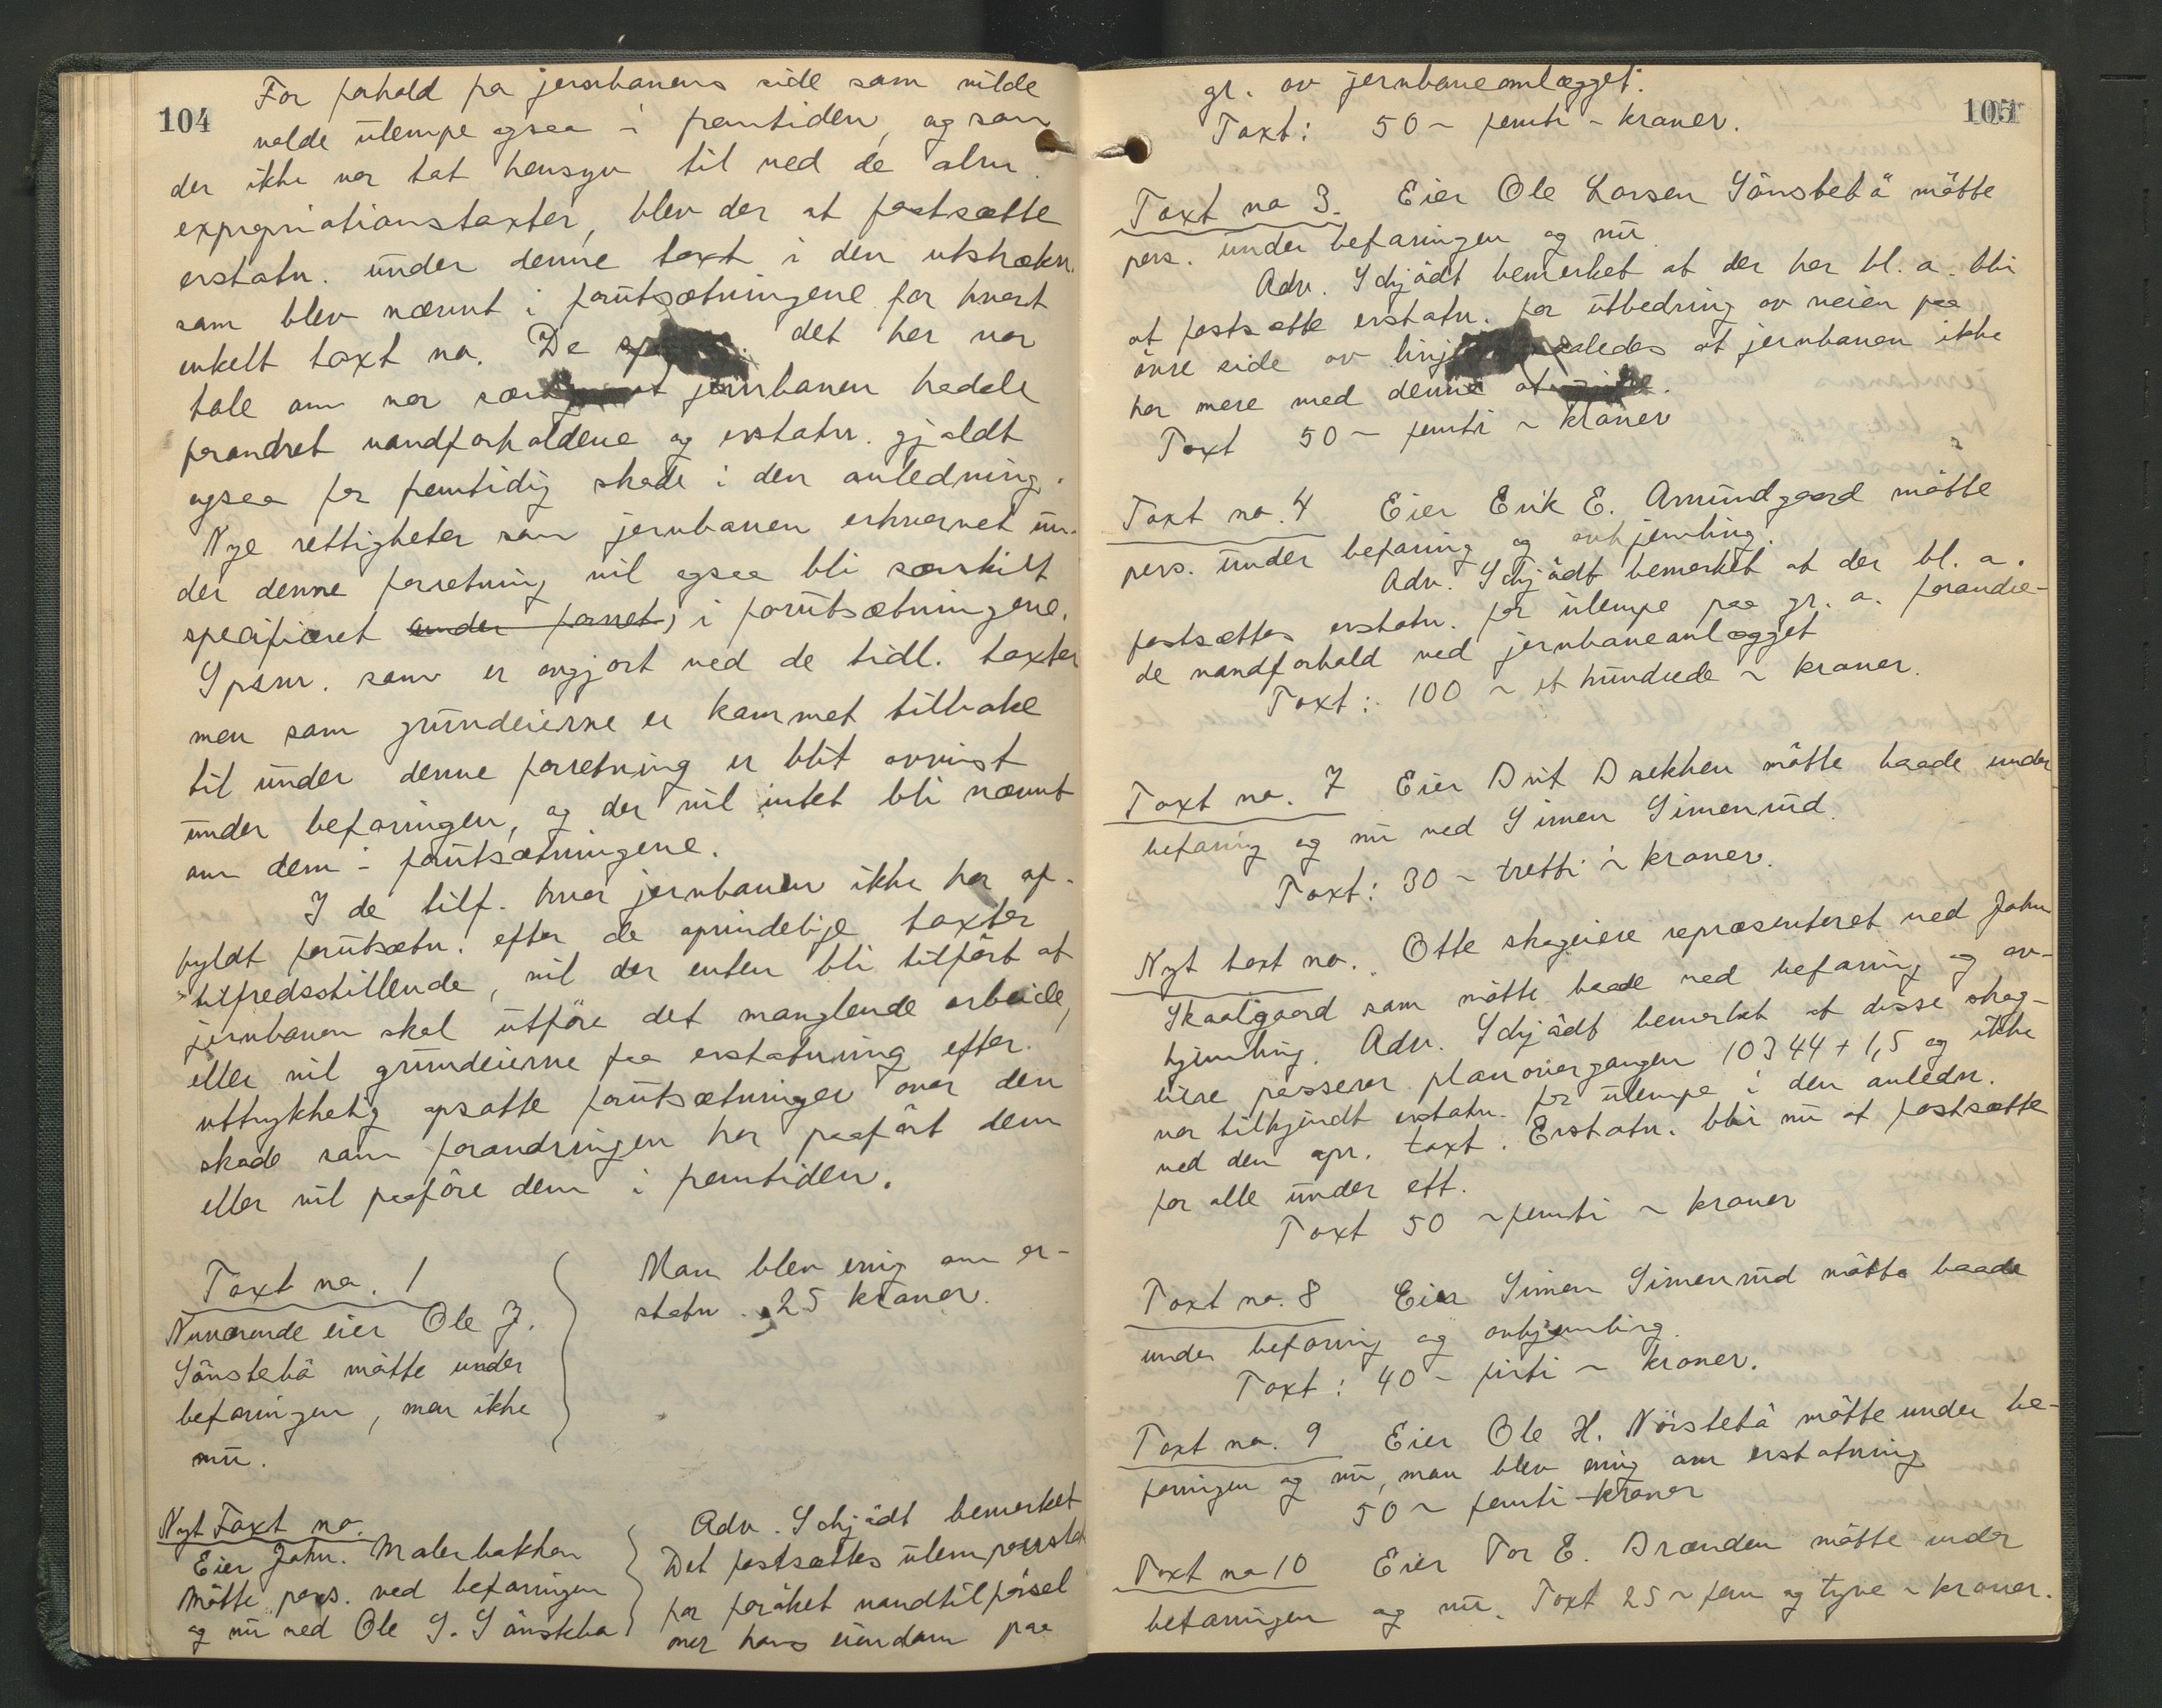 104
For forhold fra jernbanens side som vilde
volde ulempe ogsaa i fremtiden, og som
der ikke var tat hensyn til ved de alm.
expropriationstaxter, blev der at fastsætte
erstatn. under denne taxt i den utstrækn.
som blev nævnt i forutsætningene for hvert
enkelt taxt no. De det her var
tale om var jernbanen hadde
forandret vandforholdene og erstatn. gjaldt
ogsaa for fremtidig skade i den anledning.
Nye rettigheter som jernbanen erhvervet un-
der denne forretning vil ogsaa bli særskilt
specificeret under forret, i forutsætningene.
Spsm. som er avgjort ved de tidl. taxter
men som grundeierne er kommet tilbake
til under denne forretning er blit avvist
under befaringen, og der vil intet bli nævnt
om dem i forutsætningene.
I de tilf. hvor jernbanen ikke har op-
fyldt forutsætn. efter de oprindelige taxter
tilfredsstillende, vil der enten bli tilført at
jernbanen skal utføre det manglende arbeide,
eller vil grundeierne faa erstatning efter
uttrykkelig opsatte forutsætninger over den
skade som forandringen har paaført dem
eller vil paaføre dem i fremtiden.
Taxt no. 1
Nuværende eier Ole J.
Sönstebö mötte under
befaringen, men ikke
nu.
Man blev enig om er-
statn. 25 kroner.
Nyt Taxt no.
Eier John. Malerbakken
Mötte pers. ved befaringen
og nu ved Ole S. Sönstebö
Adv. Schjödt bemerket
Det fastsættes ulempeerstatn
for forøket vandtilførsel
over hans eiendom paa
105
gr. av jernbaneanlægget.
Taxt: 50 ~ femti ~ kroner.
Taxt no 3. Eier Ole Larsen Sönstebö mötte
pers. under befaringen og nu.
Adv. Schjödt bemerket at der her bl. a. blir
at fastsætte erstatn. for utbedring av veien paa
övre side av saaledes at jernbanen ikke
har mere med denne at
Taxt 50 ~ femti ~ kroner
Taxt no. 4 Eier Erik E. Amundgaard mötte
pers. under befaring og avhjemling.
Adv. Schjödt bemerket at der bl. a.
fastsættes erstatn. for ulempe paa gr. a. forandre-
de vandforhold ved jernbaneanlægget
Taxt: 100 ~ et hundrede ~ kroner.
Taxt no. 7 Eier Brit Brekken mötte baade under
befaring og nu ved Simen Simenrud.
Taxt: 30 ~ tretti ~ kroner.
Nyt taxt no. Otte skogeiere repræsenteret ved John
Skaalgaard som mötte baade ved befaring og av-
hjemling. Adv. Schjödt bemerket at disse skog-
eiere passerer planovergangen 10344 + 1,5 og ikke
var tilkjendt erstatn. for ulempe i den anledn.
ved den opr. taxt. Erstatn. blir nu at fastsætte
for alle under ett.
Taxt 50 ~ femti ~ kroner
Taxt no. 8 Eier Simen Simenrud mötte baade
under befaring og avhjemling.
Taxt: 40 ~ firti ~ kroner.
Taxt no. 9 Eier Ole H. Nörstebö mötte under be-
faringen og nu, man blev enig om erstatning
50 ~ femti ~ kroner
Taxt no 10 Eier Tor E. Brænden mötte under
befaringen og nu. Taxt 25 ~ fem og tyve ~ kroner.